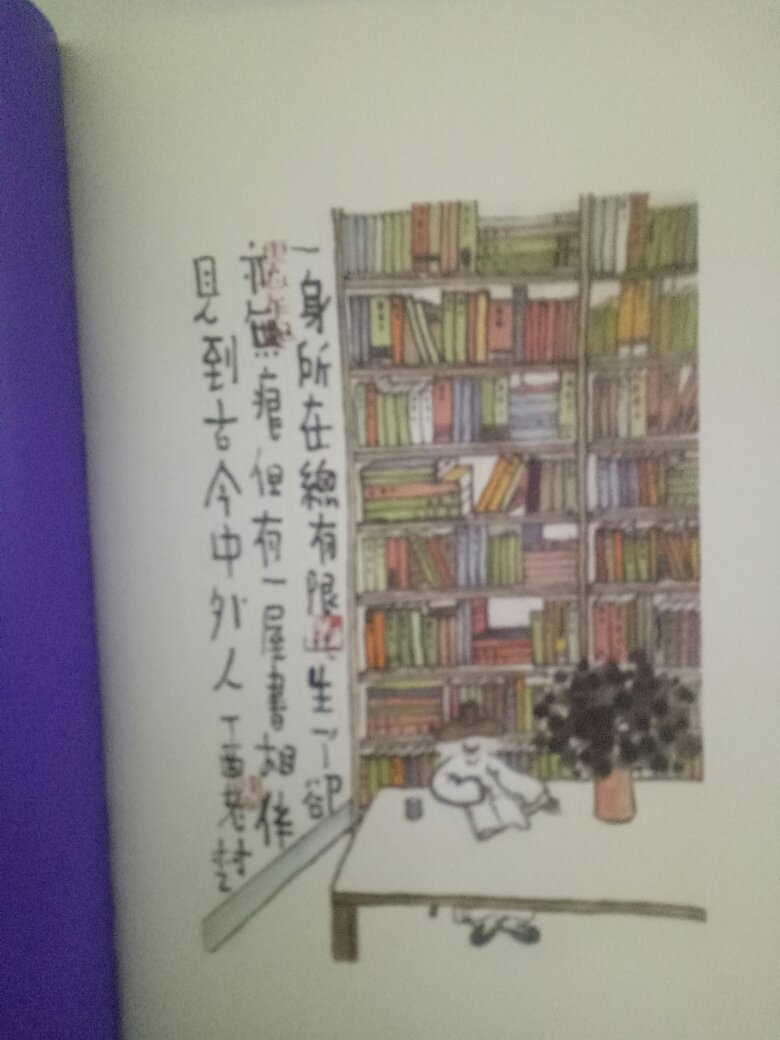 一身所在總有限一生了卻
亦無痕但有一屋書相伴
見到古今中外人 丁酉老樹